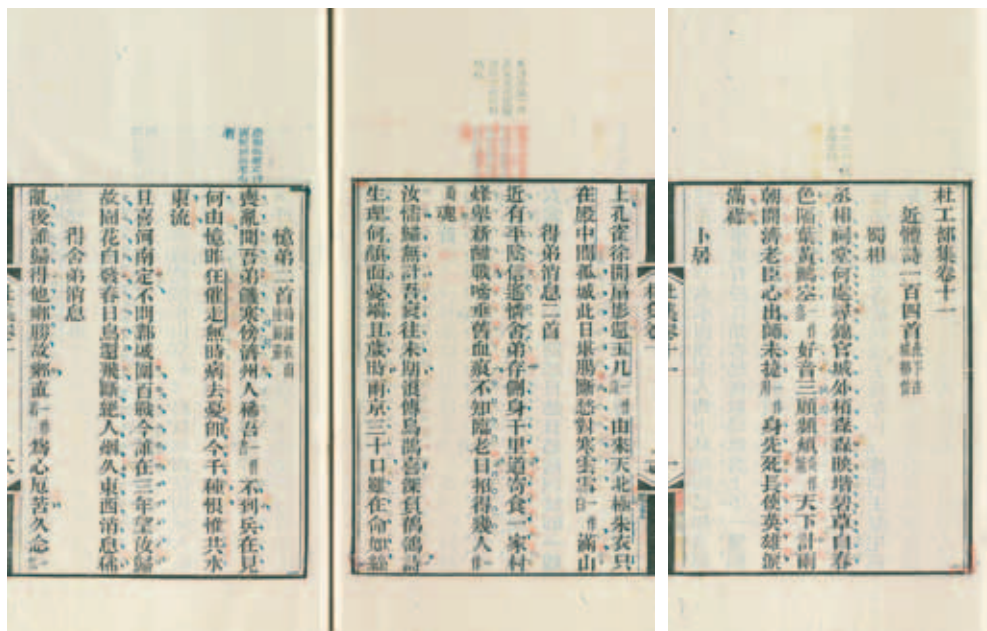 杜工部集卷十一
近體詩一百四首
蜀相
丞相祠堂何處尋錦官城外栢森森映堦碧草自春
色隔葉黃鸝空一作好音三顧頻繁天下計兩
朝開濟老臣心出師未捷一作身先死長使英雄淚
滿襟
卜居
上孔雀徐開扇影還玉几一作由來天北極朱衣只
在殿中間孤城此日堪腸斷愁對寒雲雪一作白滿山
得弟消息二首
近有平陰信遙憐舍弟存側身千里道寄食一家村
烽舉新酣戰啼垂舊血痕不知臨老日招得幾人一作
魂
汝懦歸無計吾衰往未期浪傳烏鵲喜深負鶺鴒詩
生理何顏面憂端且歲時兩京三十口雖在命如絲
憶弟二首
喪亂聞吾弟饑寒傍濟州人稀吾一作不到兵在見
何由憶昨狂催走無時病去憂即今千種恨惟共水
東流
且喜河南定不問鄴城圍百戰今誰在三年望汝歸
故園花自發春日鳥還飛斷絕人煙久東西消息稀
得舍弟消息
亂後誰歸得他鄉勝故鄉直一作若為心厄苦久念一作